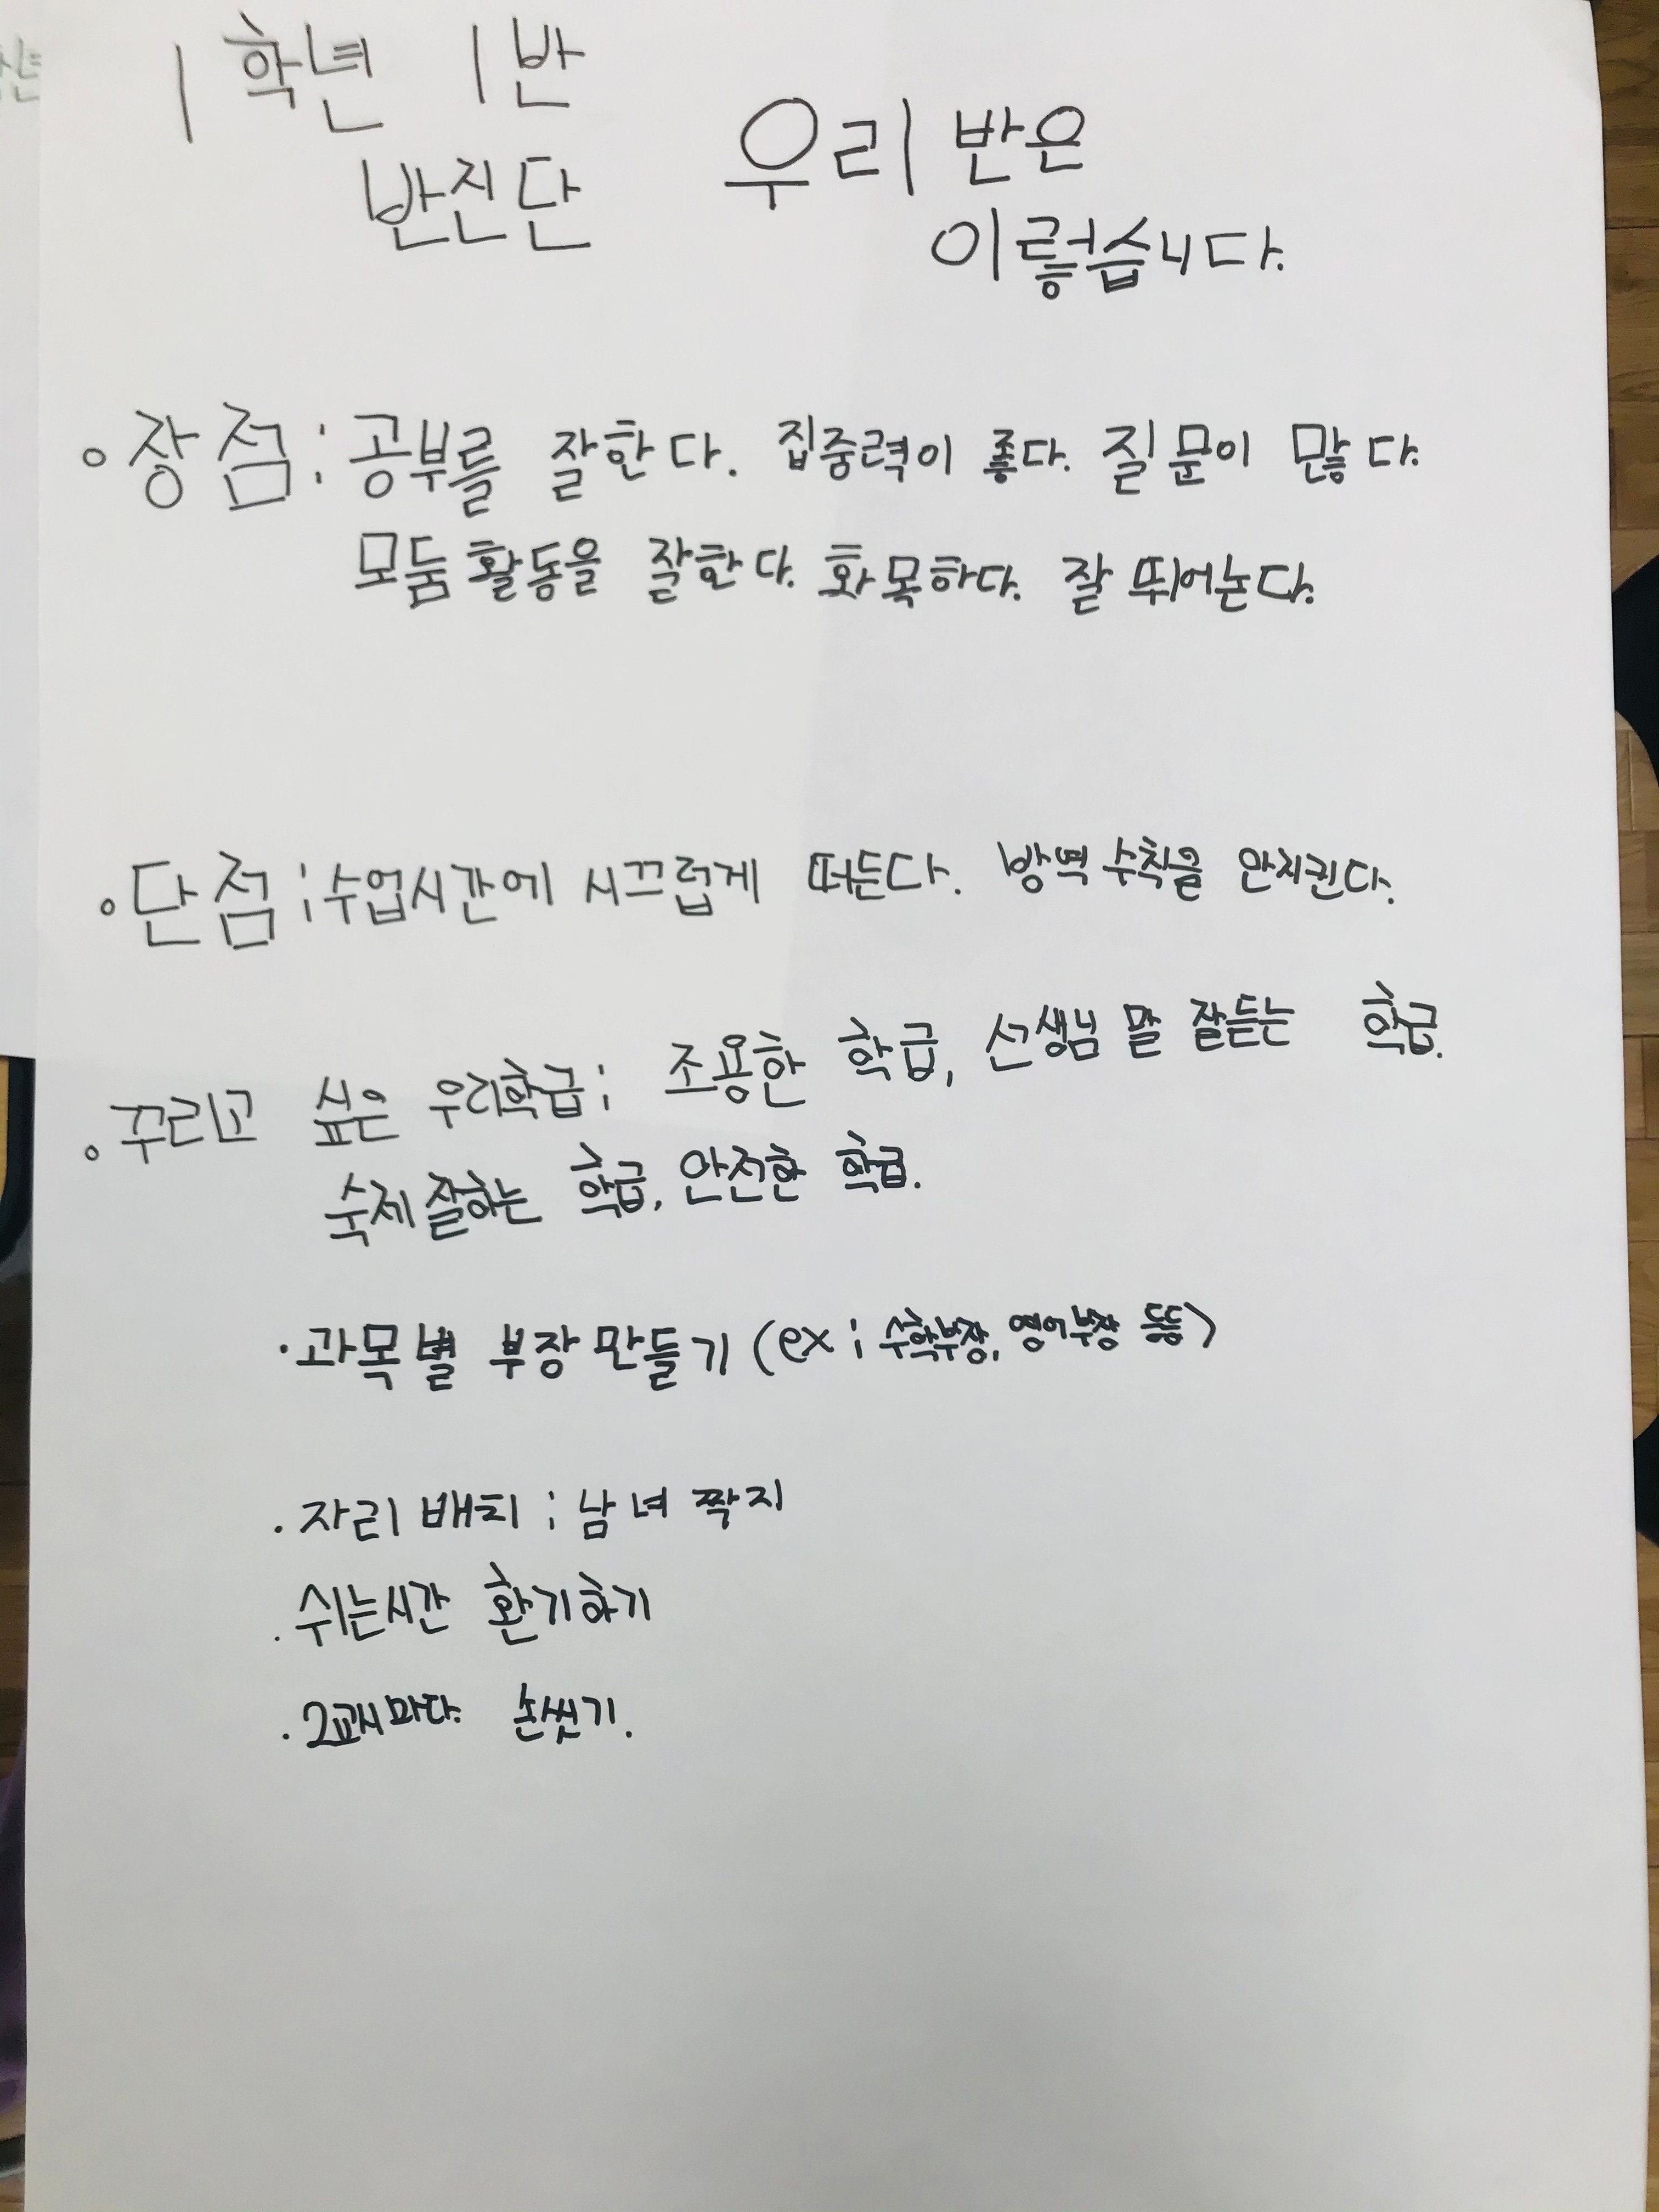 1학년 1반
반진단
우리 반은
이렇습니다.
◦장점: 공부를 잘한다. 집중력이 좋다. 질문이 많다.
모둠활동을 잘한다. 화목하다. 잘 뛰어논다.
◦단점: 수업시간에 시끄럽게 떠든다. 방역수칙을 안지킨다.
◦꾸리고 싶은 우리학급: 조용한 학급, 선생님 말 잘듣는 학급.
숙제잘하는 학급, 안전한 학급.
·과목별 부장만들기(ex: 수학부장, 영어부장 등등)
·자리배치: 남녀짝지
·쉬는시간 환기하기
·2교시마다. 손씻기.